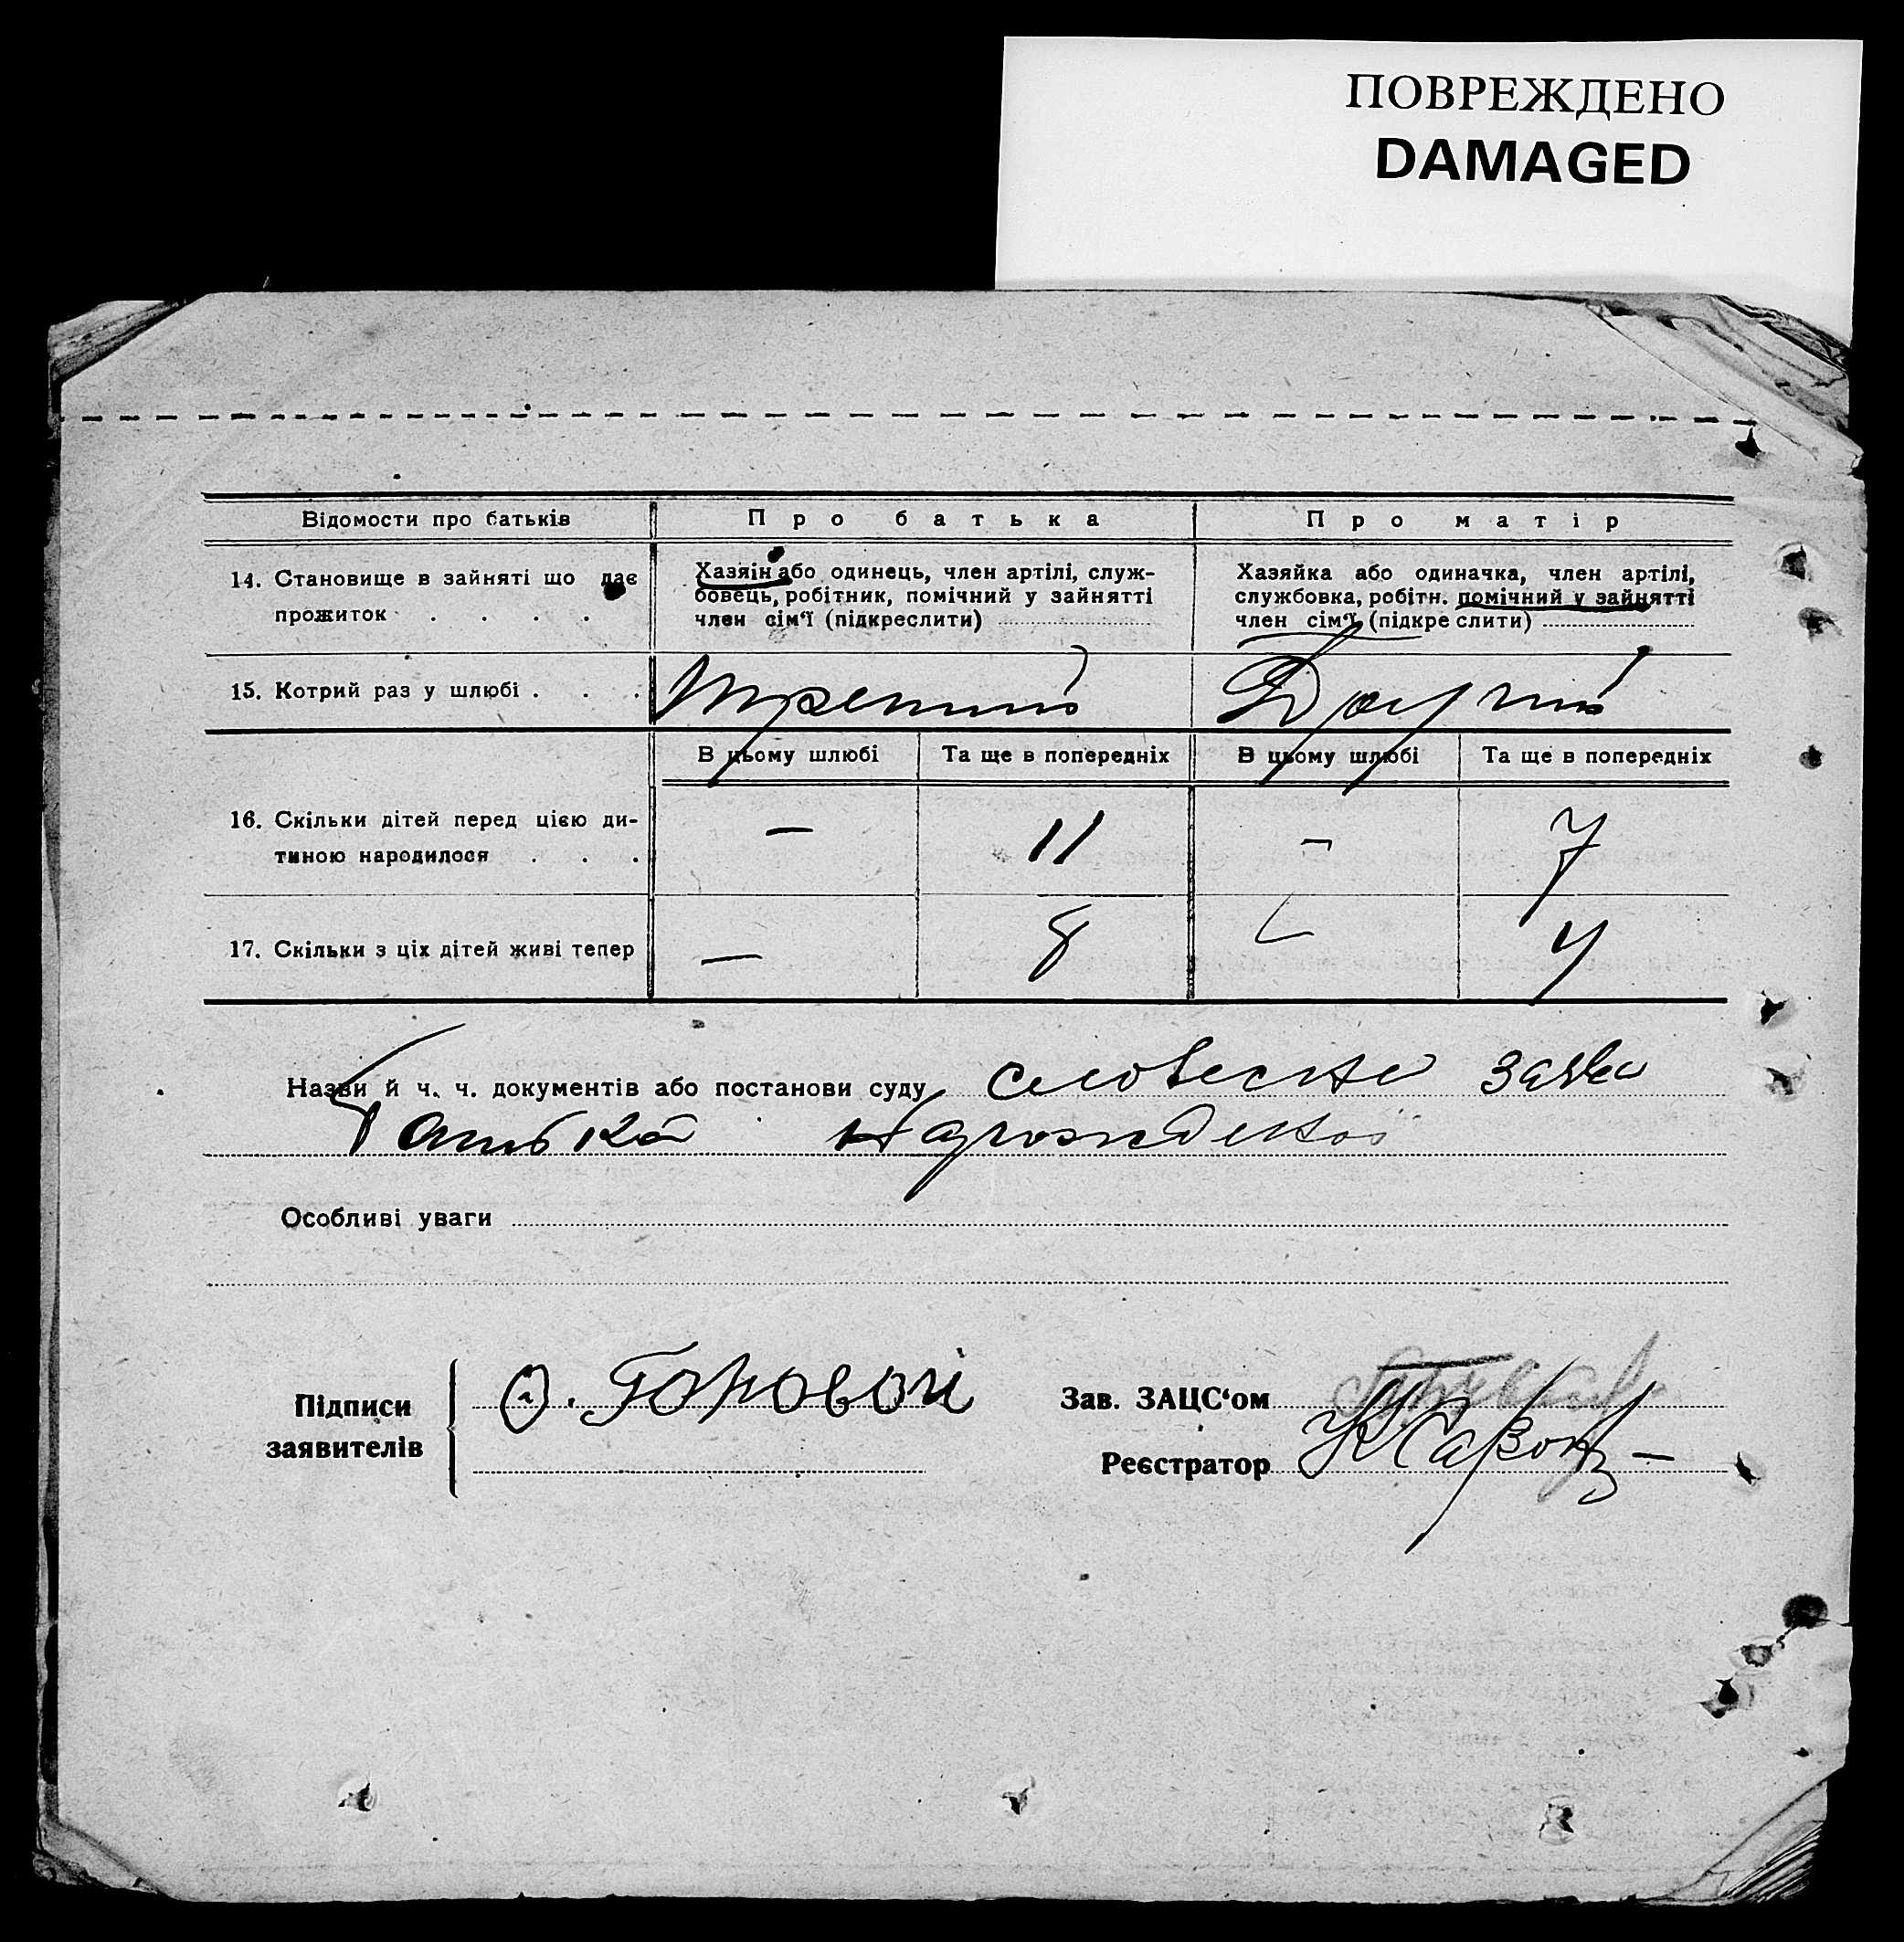 ПОВРЕЖДЕНО
DAMAGED
Відомости про батьків
Про батька
Про матір
14. Становище в зайняті що дає
прожиток . . . .
Хазяін або одинець, член артілі, служ-
бовець, робітник, помічний у зайнятті
член сім'ї (підкреслити)
Хазяйка або одиначка, член артілі,
службовка, робітн. помічний у зайнятті
член сім'ї (підкреслити)
15. Котрий раз у шлюбі . . .
третий
Другий
В цьому шлюбі
Та ще в попередніх
В цьому шлюбі
Та ще в попередніх
16. Скільки дітей перед цією ди-
тиною народилося . . .
— 11 — 7
17. Скільки з ціх дітей живі тепер
— 8 4
Назви й ч. ч. документів або постанови суду словесна заява
батька
Особливі уваги
Підписи
заявителів
О. Горовой
Зав. ЗАЦС'ом
Реєстратор